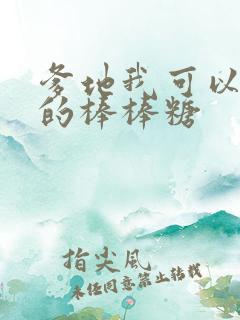 爹地我可以
的棒棒糖
指尖风
未经同意禁止转载